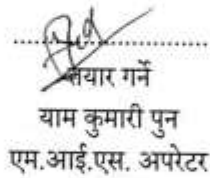 तयार गर्ने
याम कुमारी पुन
एम.आई.एस. अपरेटर